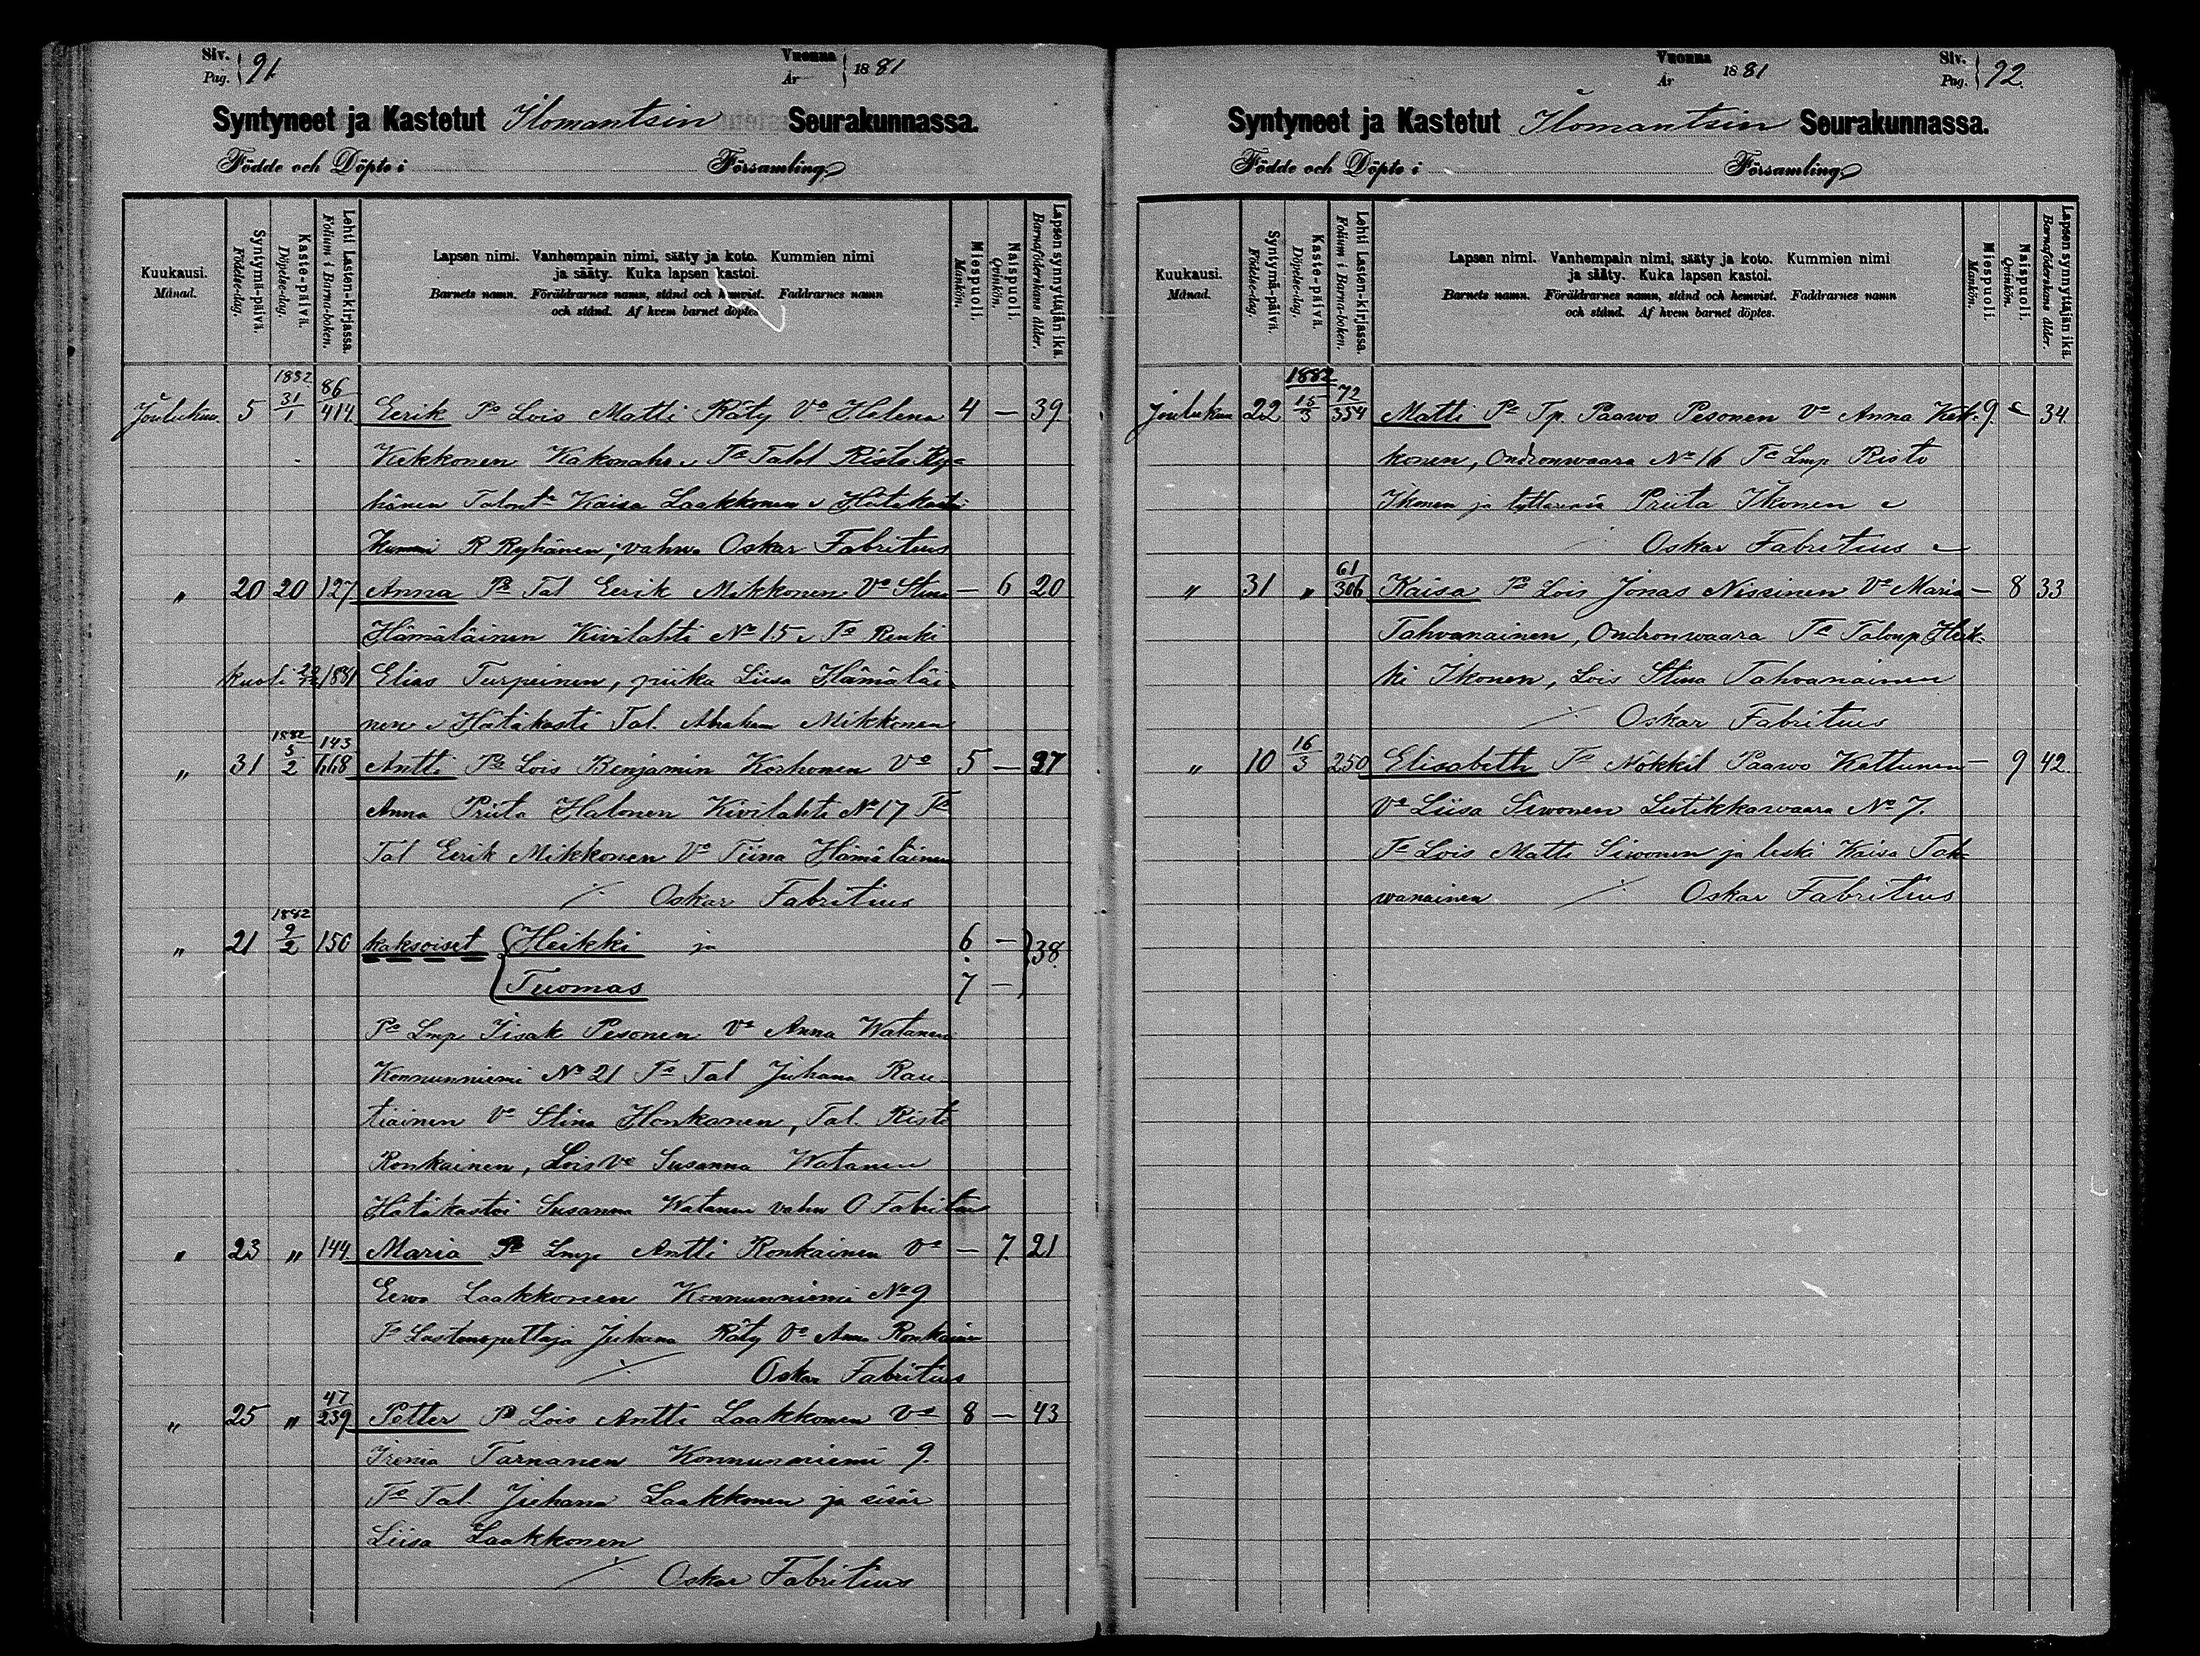 Siv. Pag. 91. Vuonna År 1881
Syntyneet ja Kastetut Ilomantsin Seurakunnassa.
Födde och Döpte i Församling
Kuukausi. Månad.
Syntymä-päivä. Födelse-dag.
Kaste-päivä. Döpelse-dag.
Lehti Lasten-kirjassa. Folium i Barna-boken.
Lapsen nimi. Vanhempain nimi, sääty ja koto. Kummien nimi
ja sääty. Kuka lapsen kastoi.
Barnets namn. Föräldrarnes namn, stånd och hemvist. Faddrarnes namn
och stånd. Af hvem barnet döptes.
Miespuoli. Mankön.
Naispuoli. Qvinkön.
Lapsen synnyttäjän ikä. Barnaföderskans ålder.
1882
Joulukuu. 5 31/1 86/414 Eerik Ps Lois Matti Räty Vo Helena 4 — 39.
Kekkonen Kakonaho Ts Talol Risto Ry=
hänen Talont Kaisa Laakkonen Hätäkasti
Kummi R Ryhänen; vahw. Oskar Fabritius
„ 20 20 127 Anna Ps Tal Eerik Mikkonen Vo Stina — 6 20
Hämäläinen Kivilahti No 15 Ts Renki
kuoli 22/12 1881 Elias Turpeinen, piika Liisa Hämäläi
nen Hätäkasti Tal. Abraham Mikkonen
1882
„ 31 5/2 143/668 Antti Ps Lois Benjamin Korhonen Vo 5 — 37
Anna Priita Halonen Kivilahti No 17 Ts
Tal Eerik Mikkonen Vo Tiina Hämäläinen
⁒ Oskar Fabritius
1882
„ 21 9/2 150 kaksoiset { Heikki ja 6 — } 38.
Tuomas 7 —
Ps Lmp Iisak Pesonen Vo Anna Watanen
Konnunniemi No 21 Ts Tal Juhana Rau
tiainen Vo Stina Honkanen, Tal. Risto
Ronkainen, Lois Vo Susanna Watanen
Hätäkastoi Susanna Watanen vahw O Fabritius
„ 23 „ 144 Maria Ps Lmp Antti Ronkainen Vo — 7. 21
Eewa Laakkonen Konnunniemi No 9
Ts Lastenopettaja Juhana Räty Vo Anna Ronkainen
⁒ Oskar Fabritius
„ 25 „ 47/239 Petter Ps Lois Antti Laakkonen Vo 8 — 43
Irenia Tarnanen Konnunniemi 9.
Ts Tal. Juhana Laakkonen ja sisär
Liisa Laakkonen
⁒ Oskar Fabritius
Vuonna År 1881 Siv. Pag. 92.
Syntyneet ja Kastetut Ilomantsin Seurakunnassa.
Födde och Döpte i Församling
Kuukausi. Månad.
Syntymä-päivä. Födelse-dag.
Kaste-päivä. Döpelse-dag.
Lehti Lasten-kirjassa. Folium i Barna-boken.
Lapsen nimi. Vanhempain nimi, sääty ja koto. Kummien nimi
ja sääty. Kuka lapsen kastoi.
Barnets namn. Föräldrarnes namn, stånd och hemvist. Faddrarnes namn
och stånd. Af hvem barnet döptes.
Miespuoli. Mankön.
Naispuoli. Qvinkön.
Lapsen synnyttäjän ikä. Barnaföderskans ålder.
1882
Joulukuu 22 15/3 72/354 Matti Ps Tp. Paawo Pesonen Vo Anna Kek= 9. — 34.
konen, Ondronwaara No 16 Ts Lmp Risto
Ikonen ja Priita Ikonen
⁒ Oskar Fabritius
„ 31 „ 61/306 Kaisa Ps Lois Jonas Nissinen Vo Maria — 8 33
Tahvanainen, Ondronwaara Ts Talonp Heik=
ki Ikonen, Lois Stina Tahvanainen
⁒ Oskar Fabritius
„ 10 16/3 250 Elisabeth Ts Mökkil Paawo Kettunen — 9 42.
Vo Liisa Siwonen Lutikkawaara No 7.
Ts Lois Matti Siwonen ja leski Kaisa Tah=
wanainen ⁒ Oskar Fabritius